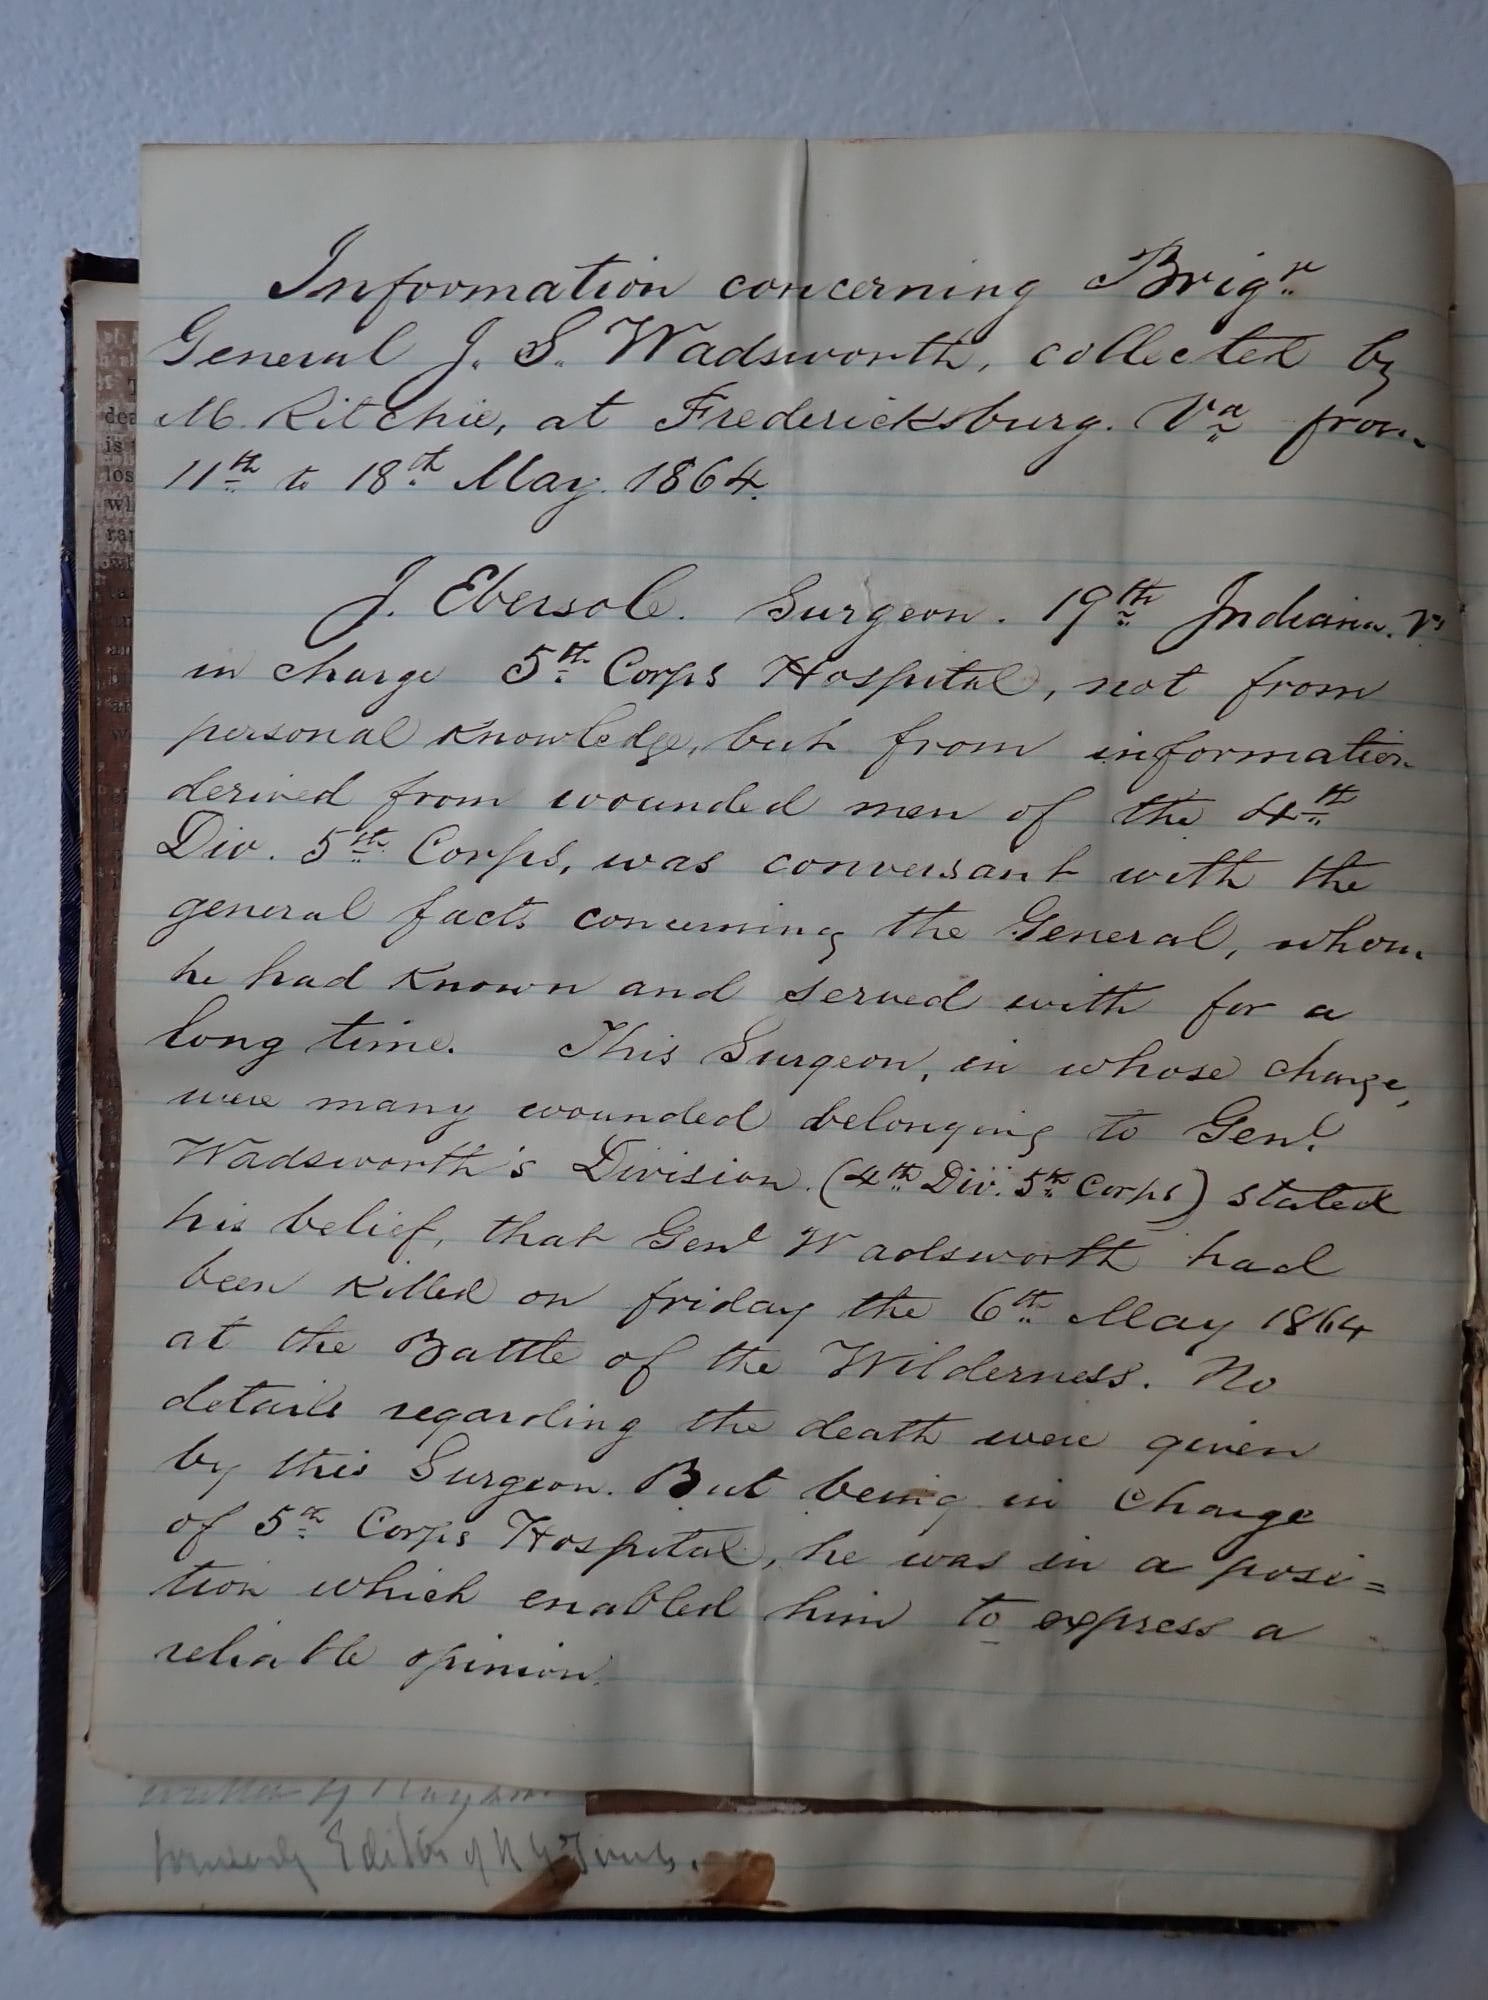 Information concerning Brigr
General J. S. Wadsworth, collected by
M. Ritchie, at Fredericksburg. Va from
11th to 18th May. 1864.
J. Ebersole. Surgeon. 19th Indiana. Vs
in charge 5th Corps Hospital, not from
personal knowledge, but from information
derived from wounded men of the 4th
Div. 5th Corps, was conversant with the
general facts concerning the General, whom
he had known and served with for a
long time. This Surgeon, in whose charge,
were many wounded belonging to Genl.
Wadsworth's Division. (4th Div. 5th Corps) stated
his belief, that Genl Wadsworth had
been killed on friday the 6th May 1864
at the Battle of the Wilderness. No
details regarding the death were given
by this Surgeon. But being in charge
of 5th Corps Hospital, he was in a posi=
tion which enabled him to express a
reliable opinion.
written by
formerly Editor of N Y Times.